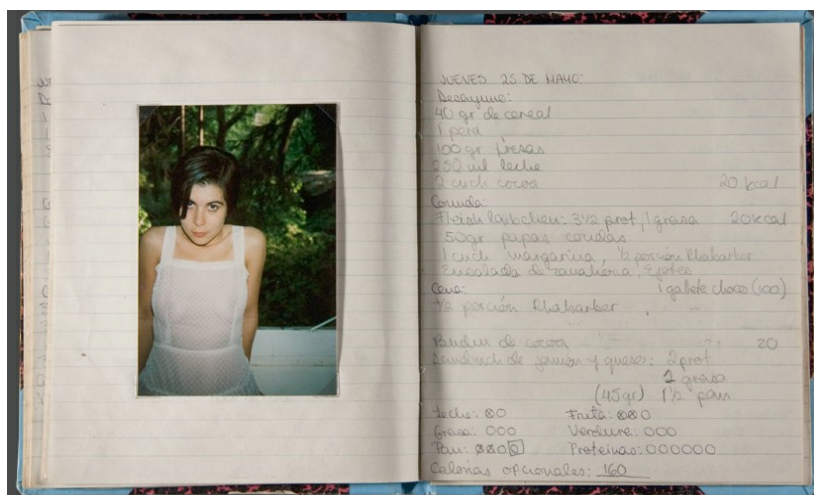 JUEVES 25 DE MAYO:
Desayuno:
40 gr de cereal
1 pera
100 gr fresas
250 ml leche
2 cuch cocoa 20 kcal
Comida:
Fleischlaibchen: 3½ prot, 1 grasa 20 kcal
50gr papas cocidas
1 cuch margarina, ½ porción Rhabarber
Ensalada de zanahoria, ejotes
Cena: 1 gallete choco (100)
½ porción Rhabarber
de cocoa 20
Sandwich de jamón y queso: 2 prot
2 grasa
(45gr) 1½ pan
Leche: ⊗O Fruta: ⊗⊗O
Grasa: OOO Verdura: OOO
Pan: ⊗⊗O Proteinas: OOOOOO
Calorias opcionales: 160